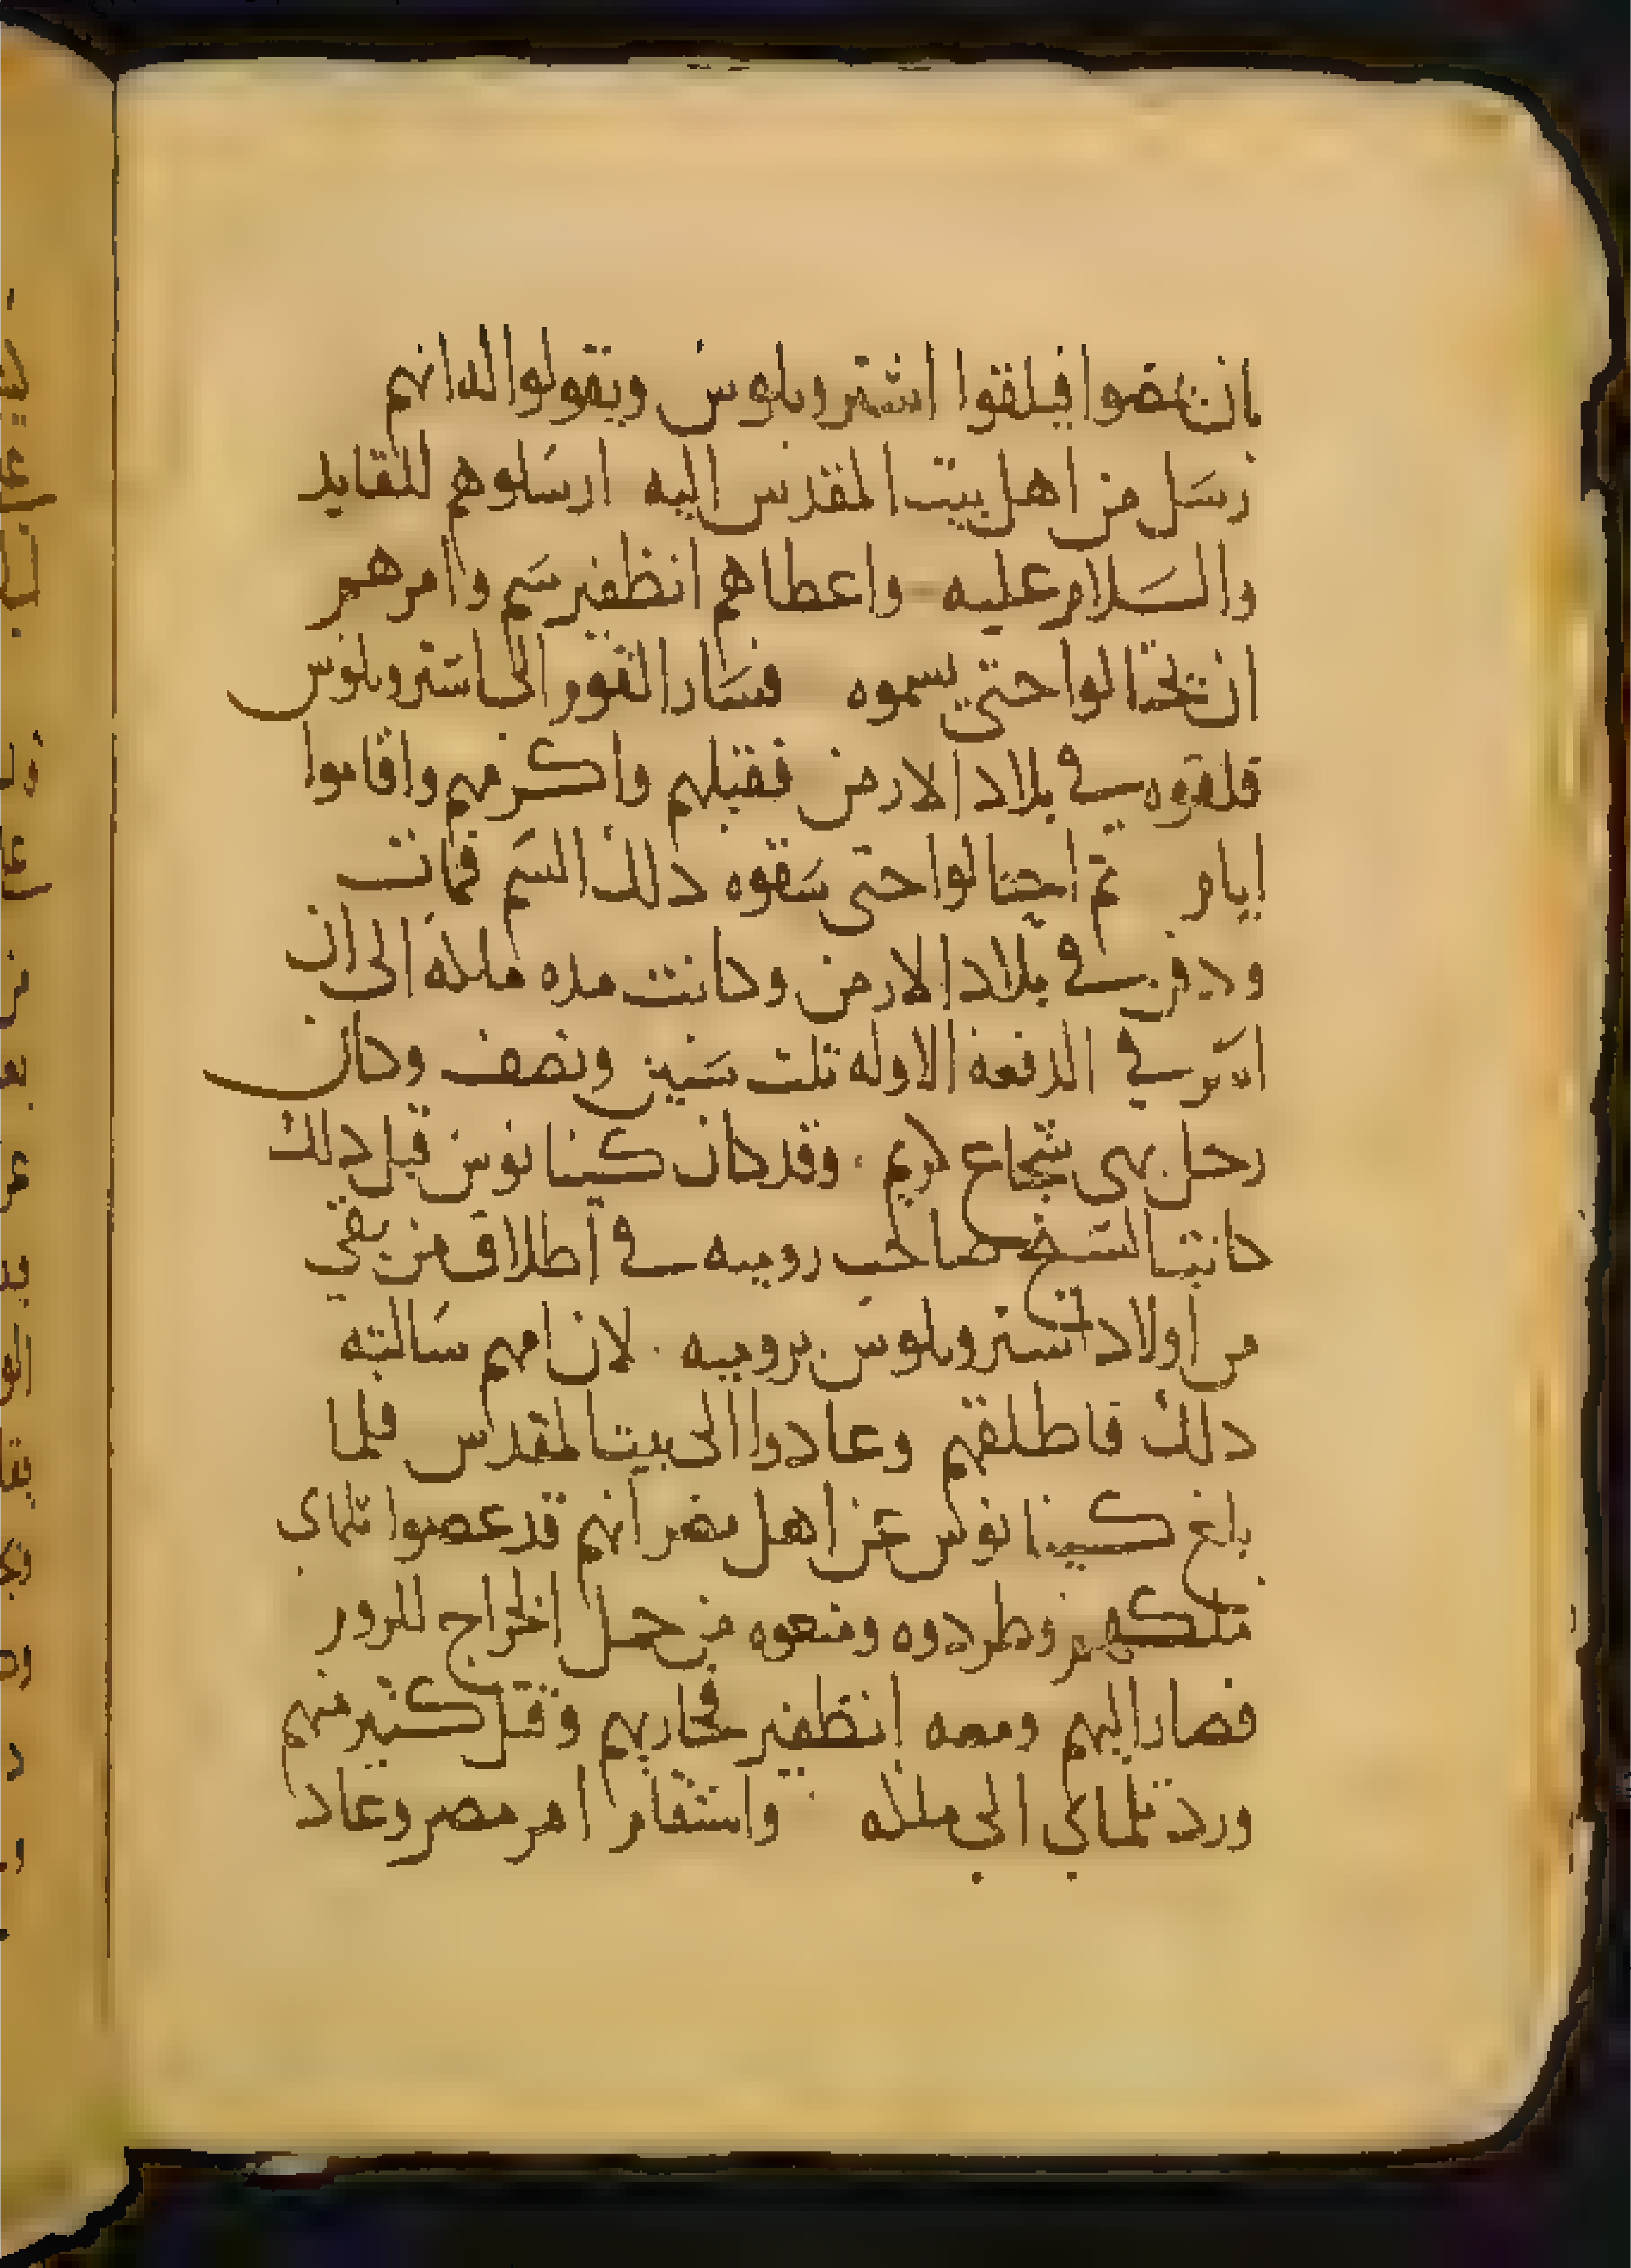 بان يمضوا فيلقوا اشتروبلوس ويقولوا له انهم
رسل من اهل بيت المقدس اليه ارسلوهم للتقايد
والسلام عليه واعطاهم انظفير سم وامرهم
ان يحتالوا حتى يسموه فسار القوم الى استروبلوس
فلقوه في بلاد الارمن فقبلهم واكرمهم واقاموا
ايام ثم احتالوا حتى سقوه دلك السم فمات
ودفن في بلاد الارمن وكانت مده ملكه الى ان
اسر في الدفعة الاوله تلت سنين ونصف وكان
رجل بهى شجاع كريم وقد كان كينانوس قبل دلك
كاتب الشيخ صاحب روميه في اطلاق من بقي
من اولاد استروبلوس بروميه لان امهم سالته
دلك فاطلقهم وعادوا الى بيت المقدس فلما
بلغ كسينانوس عن اهل مصر انهم قد عصوا تلماي
ملكهم وطردوه ومنعوه من حمل الخراج للروم
فصار اليهم ومعه انظفير فحاربهم وقتل كثير منهم
ورد تلماي الى ملكه واستقام امر مصر وعاد